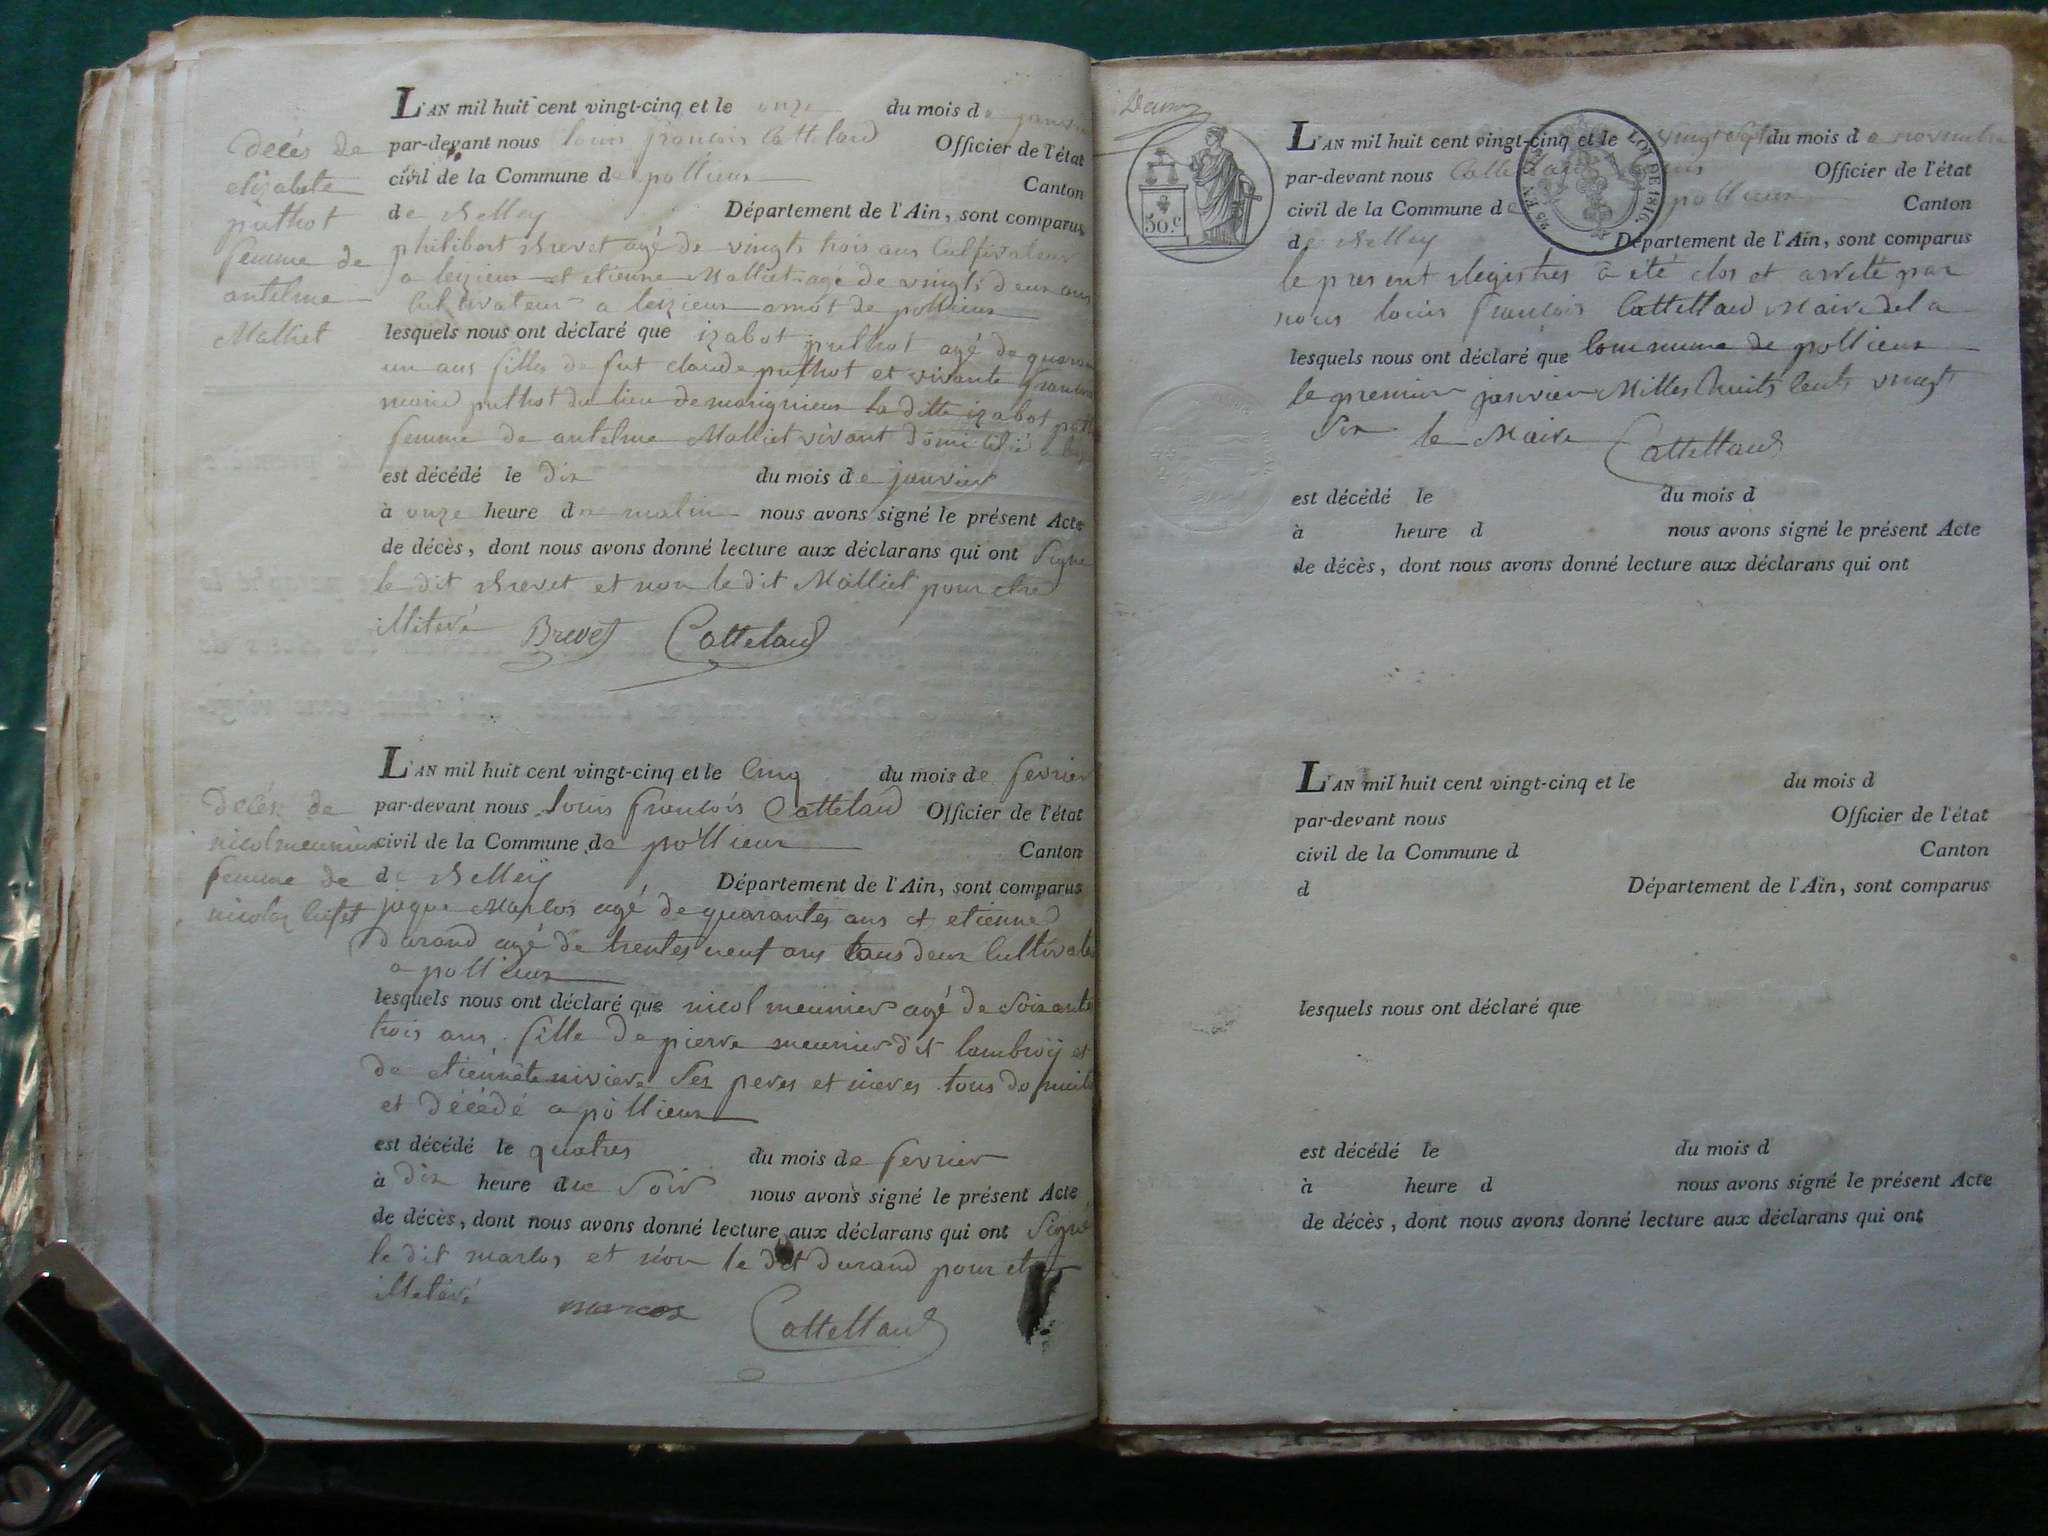 décés de
elizabete
puthot
femme de
antelme
Malliet
L'AN mil huit cent vingt-cinq et le onze du mois de janvier
par-devant nous louis francois Catteland Officier de l'état
civil de la Commune de pollieux Canton
de Belley Département de l'Ain, sont comparus
philibert Brevet agé de vingts trois ans Cultivateur
a leizieux et etienne Malliet age de vingts deux ans
Cultivateur a leizieux amot de pollieux
lesquels nous ont déclaré que izabot puthot agé de quarante
un ans filles de fut claude puthot et vivante
marie puthot du lieu de marignieux la ditte izabot
femme de antelme Malliet vivant domicilié a
est décédé le dix du mois de janvier
à onze heure du matin nous avons signé le présent Acte
de décès, dont nous avons donné lecture aux déclarans qui ont signe
le dit Brevet et non le dit Malliet pour etre
illiteré Brevet Catteland
décés de
nicol meunier
femme de
nicolas
L'AN mil huit cent vingt-cinq et le cinq du mois de fevrier
par-devant nous louis francois Catteland Officier de l'état
civil de la Commune de pollieux Canton
de Belley Département de l'Ain, sont comparus
jaque Marcos agé de quarantes ans et etienne
Durand agé de trentes neuf ans tous deux Cultivateurs
a pollieux
lesquels nous ont déclaré que nicol meunier agé de soixante
trois ans fille de pierre meunier dit lambroy et
de etiennete niviere ses peres et meres tous domicilie
et décédé a pollieux
est décédé le quatres du mois de fevrier
à dix heure du soir nous avons signé le présent Acte
de décès, dont nous avons donné lecture aux déclarans qui ont signé
le dit marcos et non le dit Durand pour etre
illeteré marcos Cattelland
50.c
LOI DE 1816
L'AN mil huit cent vingt-cinq et le vingt sept du mois de novembre
par-devant nous Cattelland louis Officier de l'état
civil de la Commune de pollieux Canton
de Belley Département de l'Ain, sont comparus
le present Registres à été clos et arreté par
nous louis francois Cattelland Maire de la
lesquels nous ont déclaré que Commune de pollieux
le premier janvier Milles huits cents vingt
six le Maire Cattelland
est décédé le du mois d
à heure d nous avons signé le présent Acte
de décès, dont nous avons donné lecture aux déclarans qui ont
L'AN mil huit cent vingt-cinq et le du mois d
par-devant nous Officier de l'état
civil de la Commune d Canton
d Département de l'Ain, sont comparus
lesquels nous ont déclaré que
est décédé le du mois d
à heure d nous avons signé le présent Acte
de décès, dont nous avons donné lecture aux déclarans qui ont